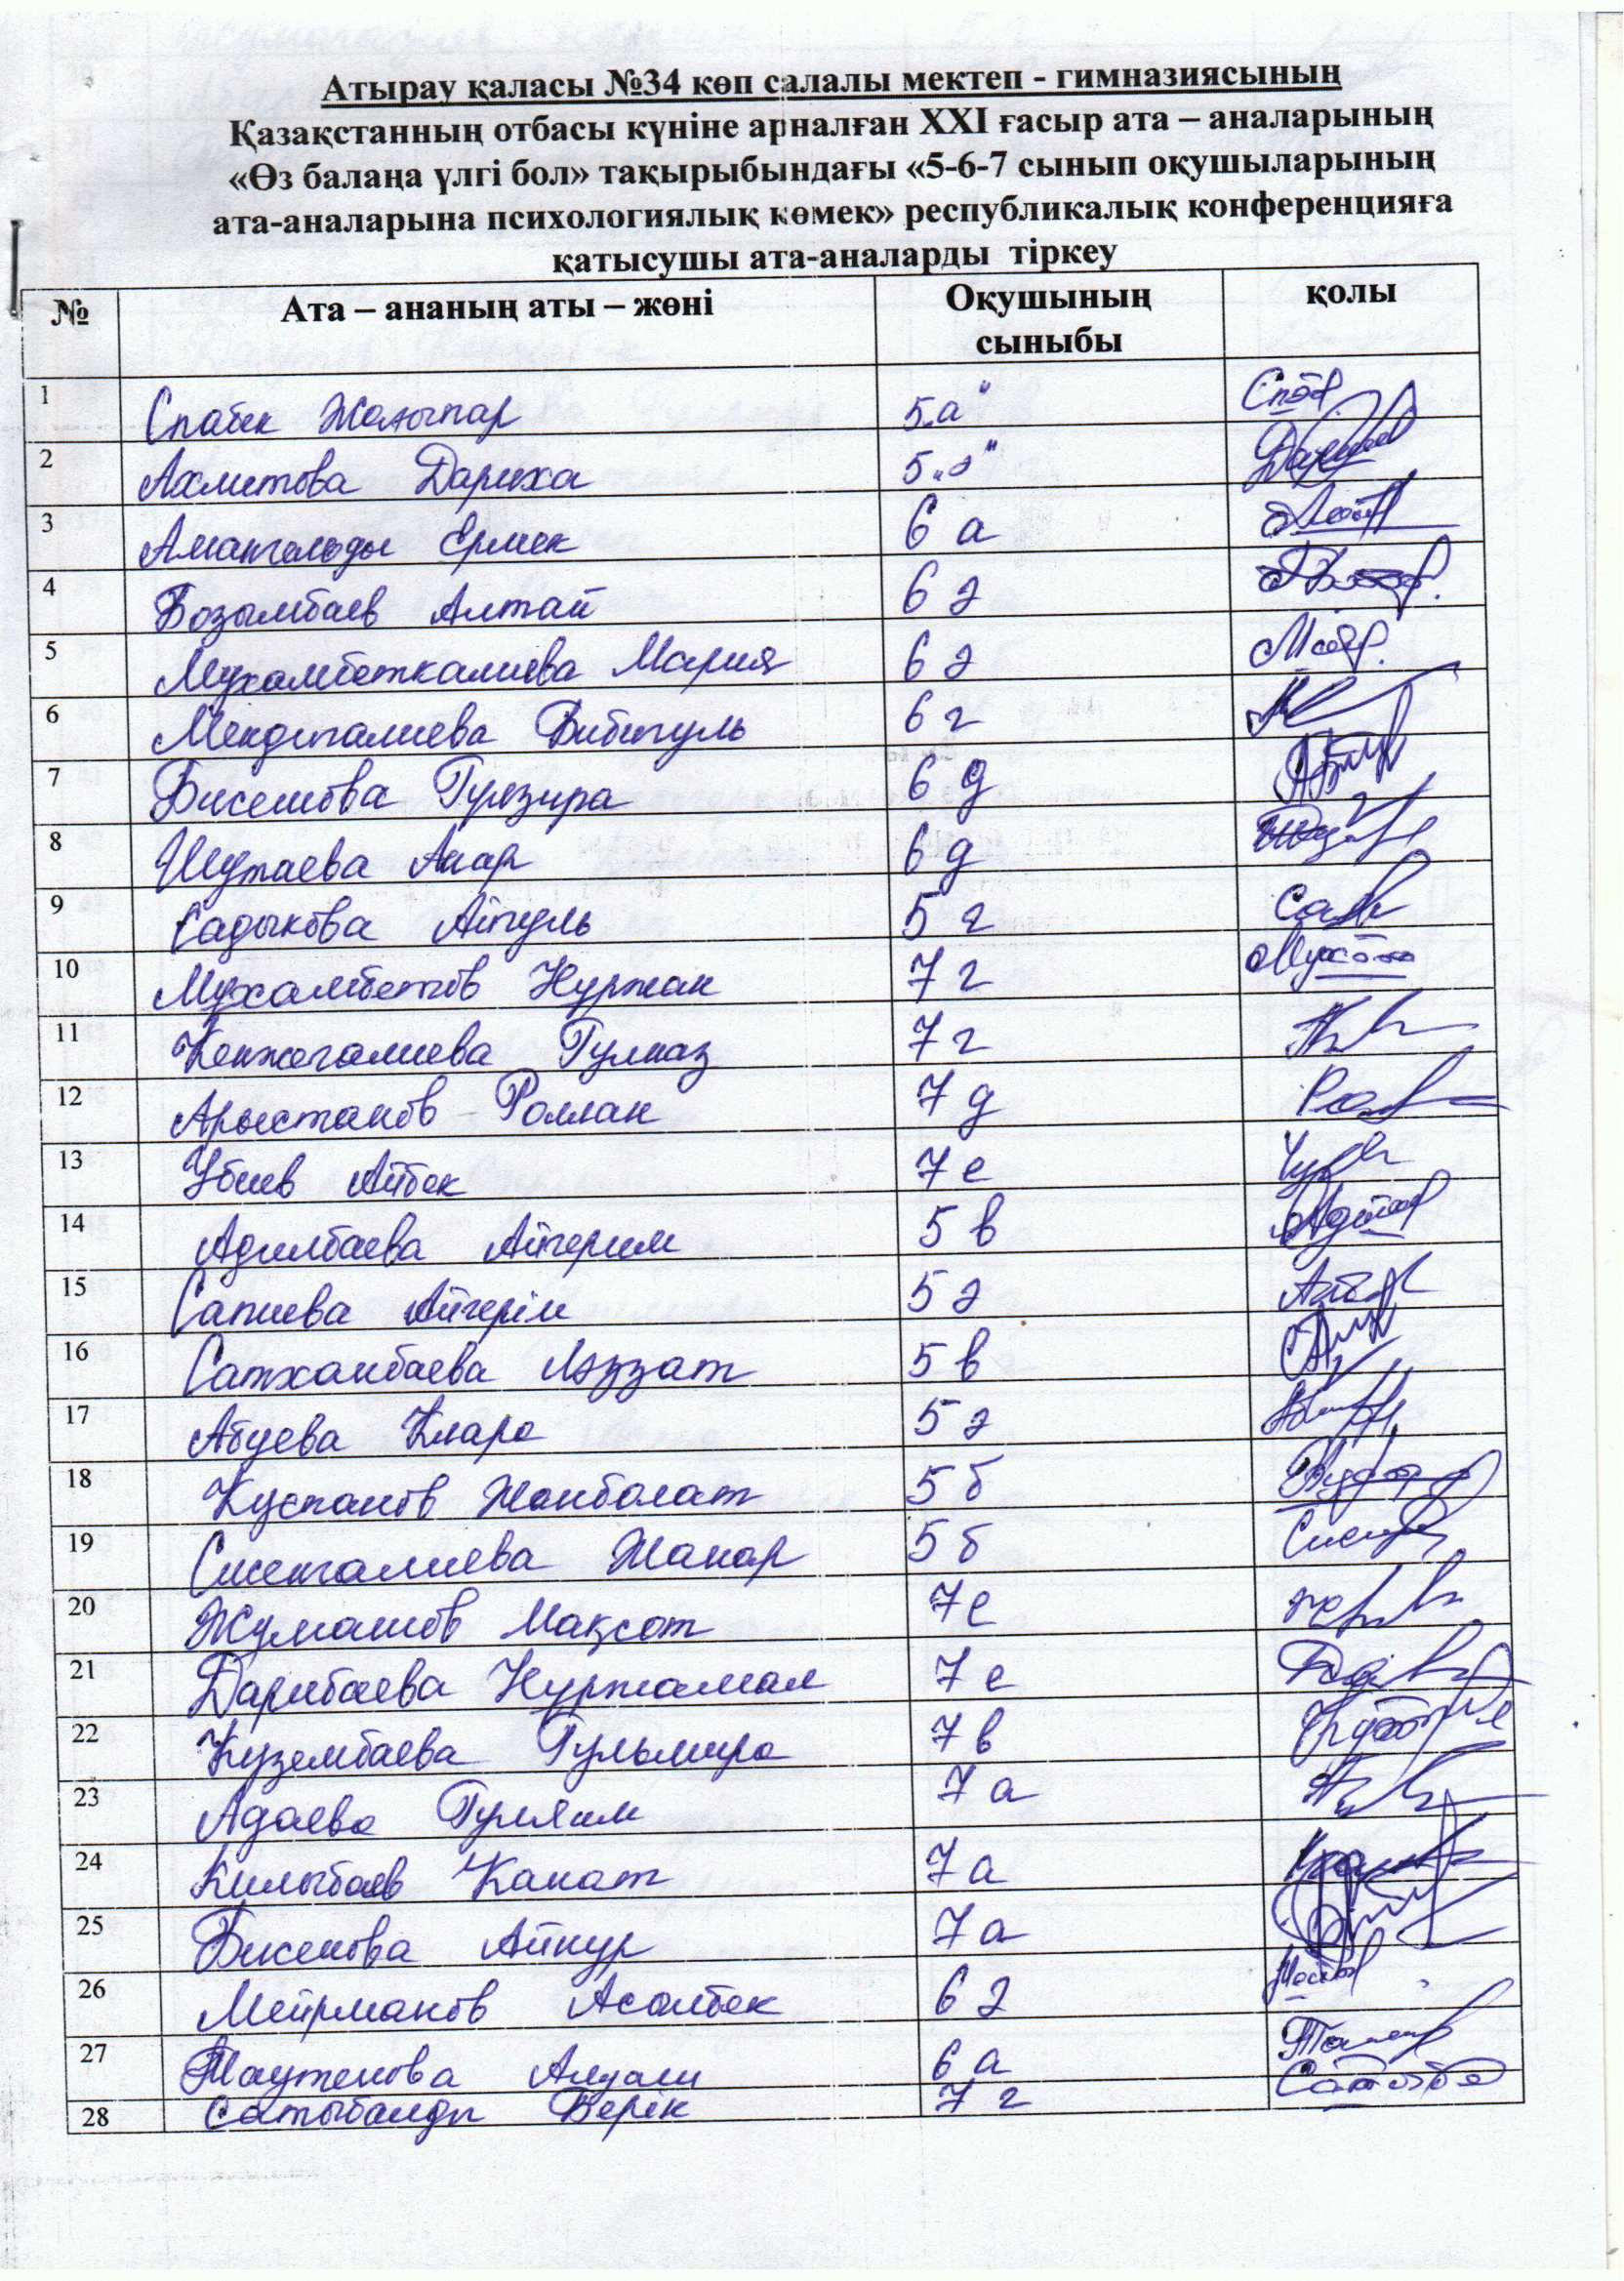 Атырау қаласы №34 көп салалы мектеп - гимназиясының
Қазақстанның отбасы күніне арналған XXI ғасыр ата – аналарының
«Өз балаңа үлгі бол» тақырыбындағы «5-6-7 сынып оқушыларының
ата-аналарына психологиялық көмек» республикалық конференцияға
қатысушы ата-аналарды тіркеу
№ Ата – ананың аты – жөні Оқушының сыныбы қолы
1 Спабек 5 „а"
2 Ахметова Дариха 5 „ә"
3 Амангельды Ермек 6 а
4 Бозымбаев Алтай 6 ә
5 Мухамбеткалиева Мария 6 ә
6 Мендигалиева Бибигуль 6 г
7 Бисенова Гулзира 6 д
8 Шутаева Анар 6 д
9 Садыкова Айгуль 5 г
10 Мухамбетов Нуржан 7 г
11 Кенжегалиева Гулназ 7 г
12 Арыстанов Роллан 7 д
13 Убиев Айбек 7 е
14 Адилбаева Айгерим 5 в
15 Сапиева Айгерім 5 ә
16 Сатханбаева Ләззат 5 в
17 Абуева Клара 5 ә
18 Куспанов Жанболат 5 б
19 Сисенгалиева Жанар 5 б
20 Жумашов Мақсат 7 е
21 Дарибаева Нуржамал 7 е
22 Кузембаева Гульмира 7 в
23 Адаева Гулайым 7 а
24 Килыбаев Канат 7 а
25 Бисенова Айнур 7 а
26 Мейрманов Асылбек 6 ә
27 Таутенова 6 а
28 Сатыбалды Берік 7 г